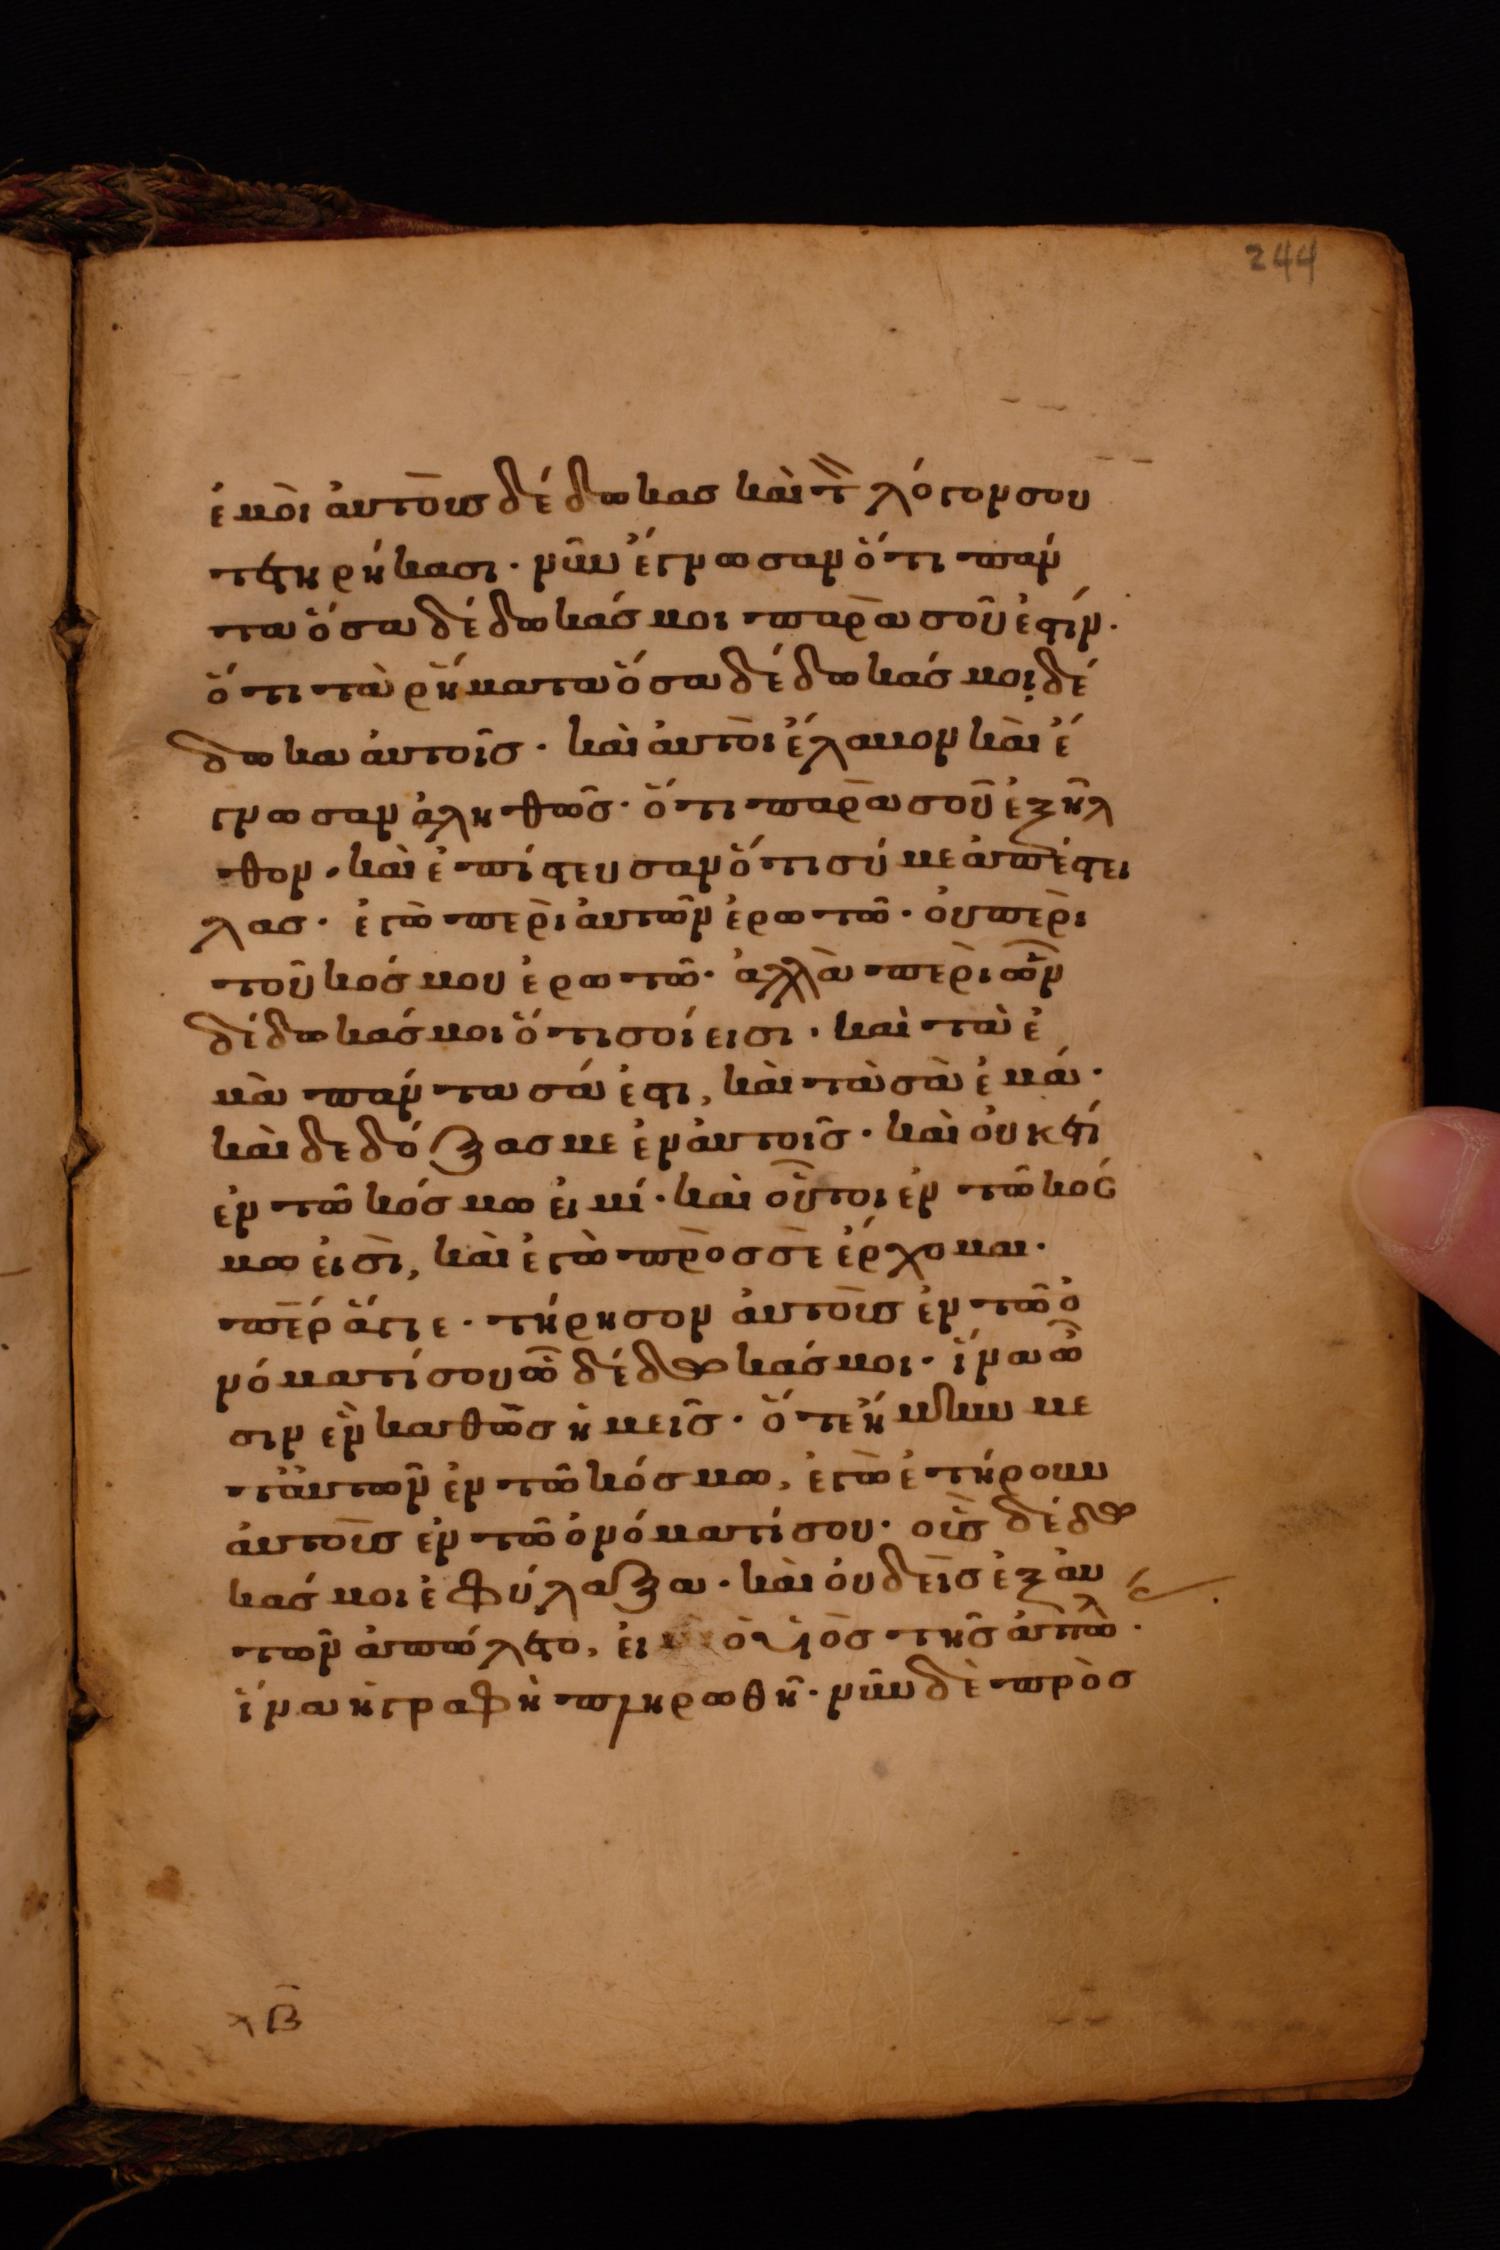 244
ἐμοὶ ἀυτοὺς δέδωκας καὶ τὸν λόγον σου
τετηρήκασι· νῦν ἔγνωσαν ὅτι πάν
τα ὅσα δέδωκάς μοι παρὰ σοῦ ἐστίν·
ὅτι τὰ ῥήματα ὅσα δέδωκάς μοι, δέ
δωκα ἀυτοῖς· καὶ ἀυτοὶ ἔλαμον καὶ ἔ
γνωσαν ἀληθῶς· ὅτι παρὰ σοῦ ἐξῆλ
θον· καὶ ἐπίστευσαν ὅτι σύ με ἀπέστει
λας· ἐγὼ περὶ ἀυτῶν ἐρωτῶ· ὀυ περὶ
τοῦ κόσμου ἐρωτῶ· ἀλλὰ περὶ ὧν
δέδωκάς μοι ὅτι σοί εισι· καὶ τὰ ἐ
μὰ πάντα σά ἐστι, καὶ τὰ σὰ ἐμά·
καὶ δεδόξασμε ἐν ἀυτοῖς· καὶ ὀυκέτί
ἐν τῶ κόσμω ἐιμί· καὶ οὗτοι ἐν τῶ κόσ
μω ἐισὶ, καὶ ἐγὼ πρὸς σὲ ἔρχομαι·
περ ἅγιε· τήρησον ἀυτοὺς ἐν τῶ ὀ
νόματί σου ὧ δέδωκάς μοι· ἵνα ὦ
σιν ἓν καθὼς ἡμεῖς· ὅτε ἤμην με
τ ἀυτῶν ἐν τῶ κόσμω, ἐγὼ ἐτήρουν
ἀυτοὺς ἐν τῶ ὀνόματί σου· οὓς δέδω
κάς μοι ἐφύλαξα· καὶ ὀυδεὶς ἐξ ἀυ
τῶν ἀπώλετο, ἐι μὴ ὁ υἱὸς τῆς ἀπωλ·
ἵνα ἡ γραφὴ πληρωθῆ· νῦν δὲ πρὸς
λβ